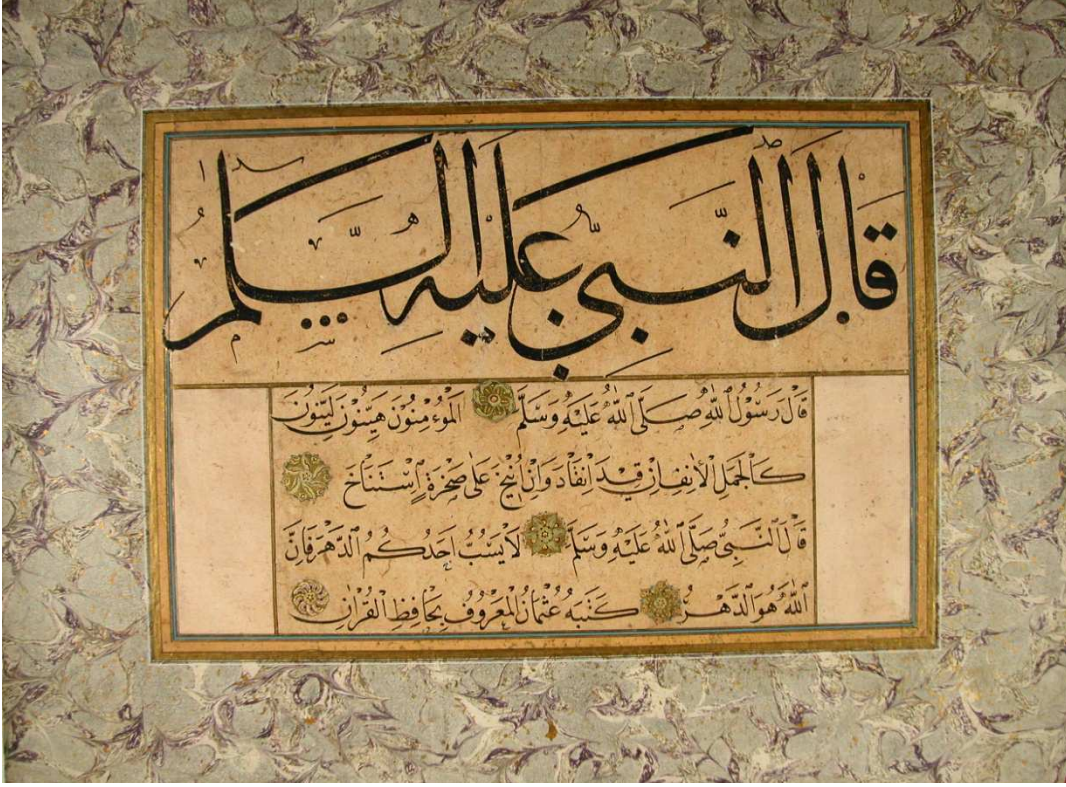 قَالَ النَّبِيُّ عَلَيْهِ السَّلَامُ
قَالَ رَسُولُ اللهِ صَلَّى اللهُ عَلَيْهِ وَسَلَّمَ الْمُؤْمِنُونَ هَيِّنُونَ لَيِّنُونَ
كَالْجَمَلِ الْأَنِفِ اِنْ قِيدَ انْقَادَ وَاِنْ اُنِيخَ عَلَى صَخْرَةٍ اسْتَنَاخَ
قَالَ النَّبِيُّ صَلَّى اللهُ عَلَيْهِ وَسَلَّمَ لَا يَسُبُّ اَحَدُكُمُ الدَّهْرَ فَاِنَّ
اللهَ هُوَ الدَّهْرُ كَتَبَهُ عُثْمَانُ الْمَعْرُوفُ بِحَافِظِ الْقُرْاٰنِ